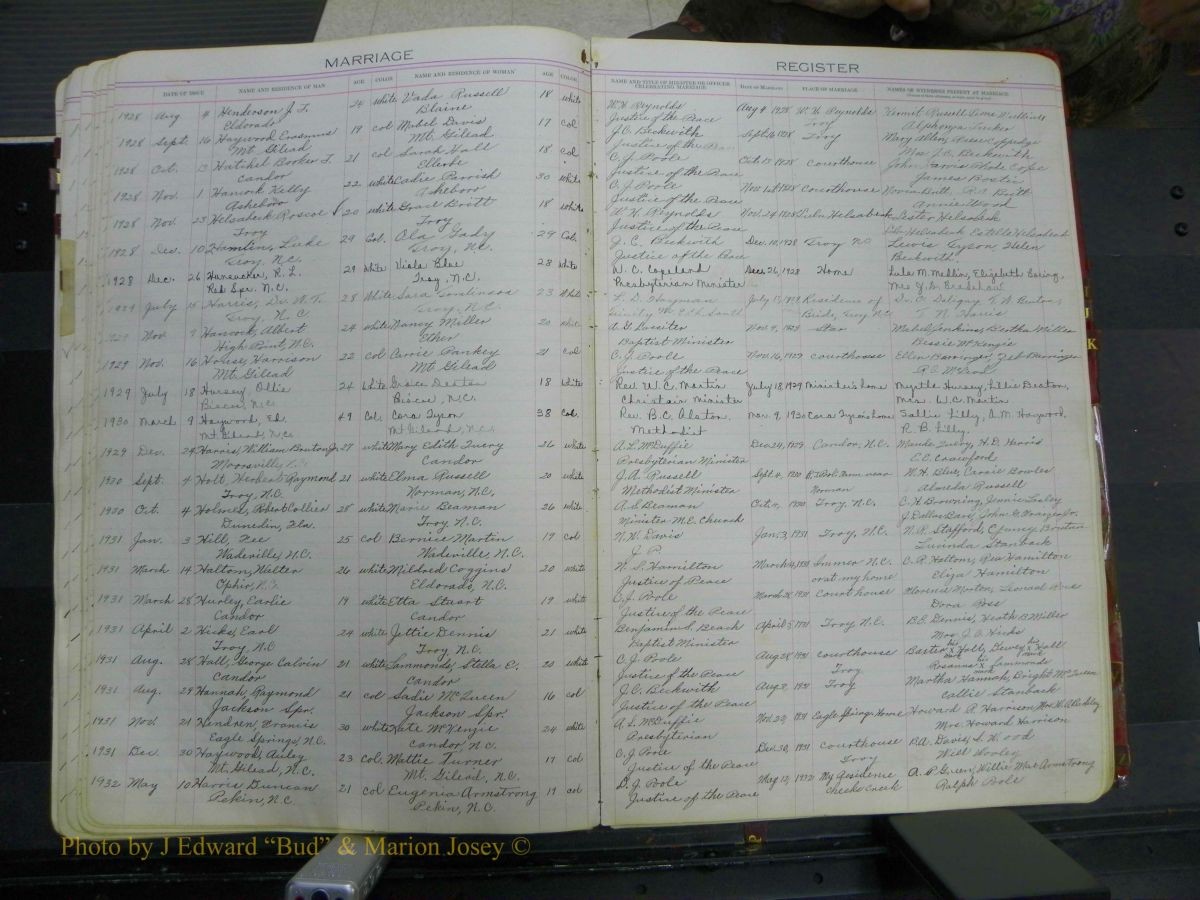 MARRIAGE REGISTER
DATE OF ISSUE NAME AND RESIDENCE OF MAN AGE COLOR NAME AND RESIDENCE OF WOMAN AGE COLOR NAME AND TITLE OF MINISTER OR OFFICER CELEBRATING MARRIAGE DATE OF MARRIAGE PLACE OF MARRIAGE NAMES OF WITNESSES PRESENT AT MARRIAGE
1928 Aug 4 Henderson J. F. 24 white Vada Russell 18 white W. H. Reynolds Aug 4 1928 W. H. Reynolds Vernit Russell
Eldorado Blaine Justice of the Peace Troy Alphonza Tucker
1928 Sept. 16 Haywood Erasmus 19 col Mabel Davis 17 col J.C. Beckwith Sept. 16 1928 Troy Mary Allen,
Mt. Gilead Mt. Gilead Justice of the Peace Mrs. J.C. Beckwith
1928 Oct. 13 Hatchel Booker T. 21 col Sarah Hall 18 col C. J. Poole Oct. 13 1928 Courthouse John
Candor Ellerbe Justice of the Peace James
1928 Nov. 1 Hancock Kelly 22 white Parrish 30 white C. J. Poole Nov 1st 1928 Courthouse
Asheboro Asheboro Justice of the Peace Annie Wood
1928 Nov. 23 Helsabeck Roscoe 20 white Grace Britt 18 white W. H. Reynolds Nov. 24 1928 Helsabeck Lester Helsabeck
Troy Troy Justice of the Peace Helsabeck Estelle Helsabeck
1928 Dec. 10 Hamlin, Luke 29 Col. Ola Gady 29 Col. J. C. Beckwith Dec. 10, 1928 Troy NC Lewis Tyson Helen
Troy, N.C. Troy, N.C. Justice of the Peace Beckwith.
1928 Dec. 26 Hunsucker, R. L. 29 white Viola Blue 28 white W. C. Copeland Dec 26, 1928 Home Lula M. Medlin, Elizabeth
Red Spr. N.C. Troy, N.C. Presbyterian Minister Mrs
1929 July 15 Harris, Dr. W. T. 28 White Sara Tomlinson 23 White L. D. Hayman July 15, 1929 Residence of Dr.
Troy, N.C. Troy, N.C. Trinity Bride, Troy, N.C. T. N. Harris
1929 Nov 9 Hancock, Albert 24 white Nancy Miller 20 white A G Lassiter Nov. 9, 1929 Star Mabel Jenkins, Bertha Miller
High Point, N.C. Ether Baptist Minister Bessie McKenzie
1929 Nov. 16 House, Harrison 22 col Carrie Pankey 21 col C. J. Poole Nov 16, 1929 courthouse Ellen Barringer, Zeb Barringer
Mt. Gilead Mt Gilead Justice of the Peace
1929 July 18 Hursey, Ollie 24 white Grace Deaton 18 white Rev. W. C. Martin July 18 1929 Minister's home Myrtle Hursey, Lillie Deaton,
Biscoe, N.C. Biscoe, N.C. Christain Minister Mrs. W. C. Martin
1930 March 9 Haywood, Ed. 49 Col. Cora Tyson 38 col. Rev. B.C. Alston. Mar. 9, 1930 Cora Tyson's home Sallie Lilly, A. M. Haywood,
Mt Gilead, N.C. Mt Gilead, N.C. Methodist R. B. Lilly.
1929 Dec. 24 Harris, William Bruton Jr. 27 white Mary Edith Ivery 26 white A. L. McDuffie Dec 24, 1929 Candor, N.C. Maude Ivery, H. D. Harris
Mooresville Candor Presbyterian Minister E C Crawford
1930 Sept. 4 Holt, Herbert Raymond 21 white Elma Russell 20 white J. A. Russell Sept. 4 1930 near W.H. Blue, Carrie Bowles
Troy, N.C. Norman, N.C. Methodist Minister Norman Almeda Russell
1930 Oct. 4 Holmes, Robert Collier 28 white Marie Beaman 26 white A. S. Beaman Oct. 1930 Troy, N.C. C. H. Browning, Jennie Lasley
Dunedin, Fla. Troy N.C. Minister M.E. Church
1931 Jan. 3 Hill, Nee 25 col Bernice Martin 19 col N. W. Davis Jan. 3, 1931 Troy, N.C. N. A. Stafford, Bruton
Wadeville, N.C. Wadeville, N.C. J. P. Lucinda Stanback
1931 March 14 Halton, Walter 26 white Mildred Coggins 20 white N. S. Hamilton March 14, 1931 N.C. C. R. Helton, Hamilton
Ophir, N.C. Eldorado, N.C. Justice of Peace or at my home Eliza Hamilton
1931 March 28 Hurley, Earlie 19 white Etta Stuart 19 white C. J. Poole March 28, 1931 Courthouse
Candor Candor Justice of the Peace Dora
1931 April 2 Hicks, Earl 24 white Jettie Dennis 21 white Benjamin S. Beach April 5 1931 Troy N.C. B.E. Dennis, Heath C. Miller
Troy N.C. Troy N.C. Baptist Minister Mrs. J. A. Hicks
1931 Aug. 28 Hall, George Calvin 21 white Sammonds, Stella E. 20 white C. J. Poole Aug 28, 1931 courthouse Baxter his x mark Hall, Dewey his x mark Hall
Candor Candor Justice of the Peace Troy Rosanna his x mark Sammonds
1931 Aug. 29 Hannah, Raymond 21 col Sadie McQueen 16 col J. C. Beckwith Aug 1931 Troy Martha Hannah, Dwight McQueen
Jackson Spr. Jackson Spr. Justice of the Peace Callie Stanback
1931 Nov. 21 Hendren Francis 30 white Kate McKenzie 24 white A. L. McDuffie Nov. 1931 Eagle Springs Home Howard A. Harrison
Eagle Springs, N.C. Candor, N.C. Presbyterian Mrs. Howard Harrison
1931 Dec. 30 Haywood, Auley 23 col. Mattie Turner 17 col C. J. Poole Dec. 30, 1931 courthouse R. A. Davis, S. Wood
Mt. Gilead, N.C. Mt. Gilead, N.C. Justice of the Peace Troy Will Wooley
1932 May 10 Harris Duncan 21 col Eugenia Armstrong 19 col D. J. Poole May 12, 1932 My Residence A. P. Green, Willie Mae Armstrong
Pekin, N.C. Pekin, N.C. Justice of the Peace Cheeks Creek Ralph Poole
Photo by J Edward "Bud" & Marion Josey ©